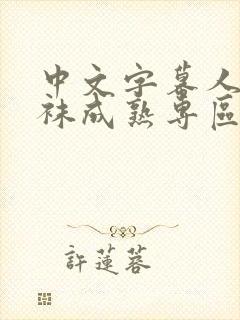 中文字幕人
袜成熟专區
許蓮蓉